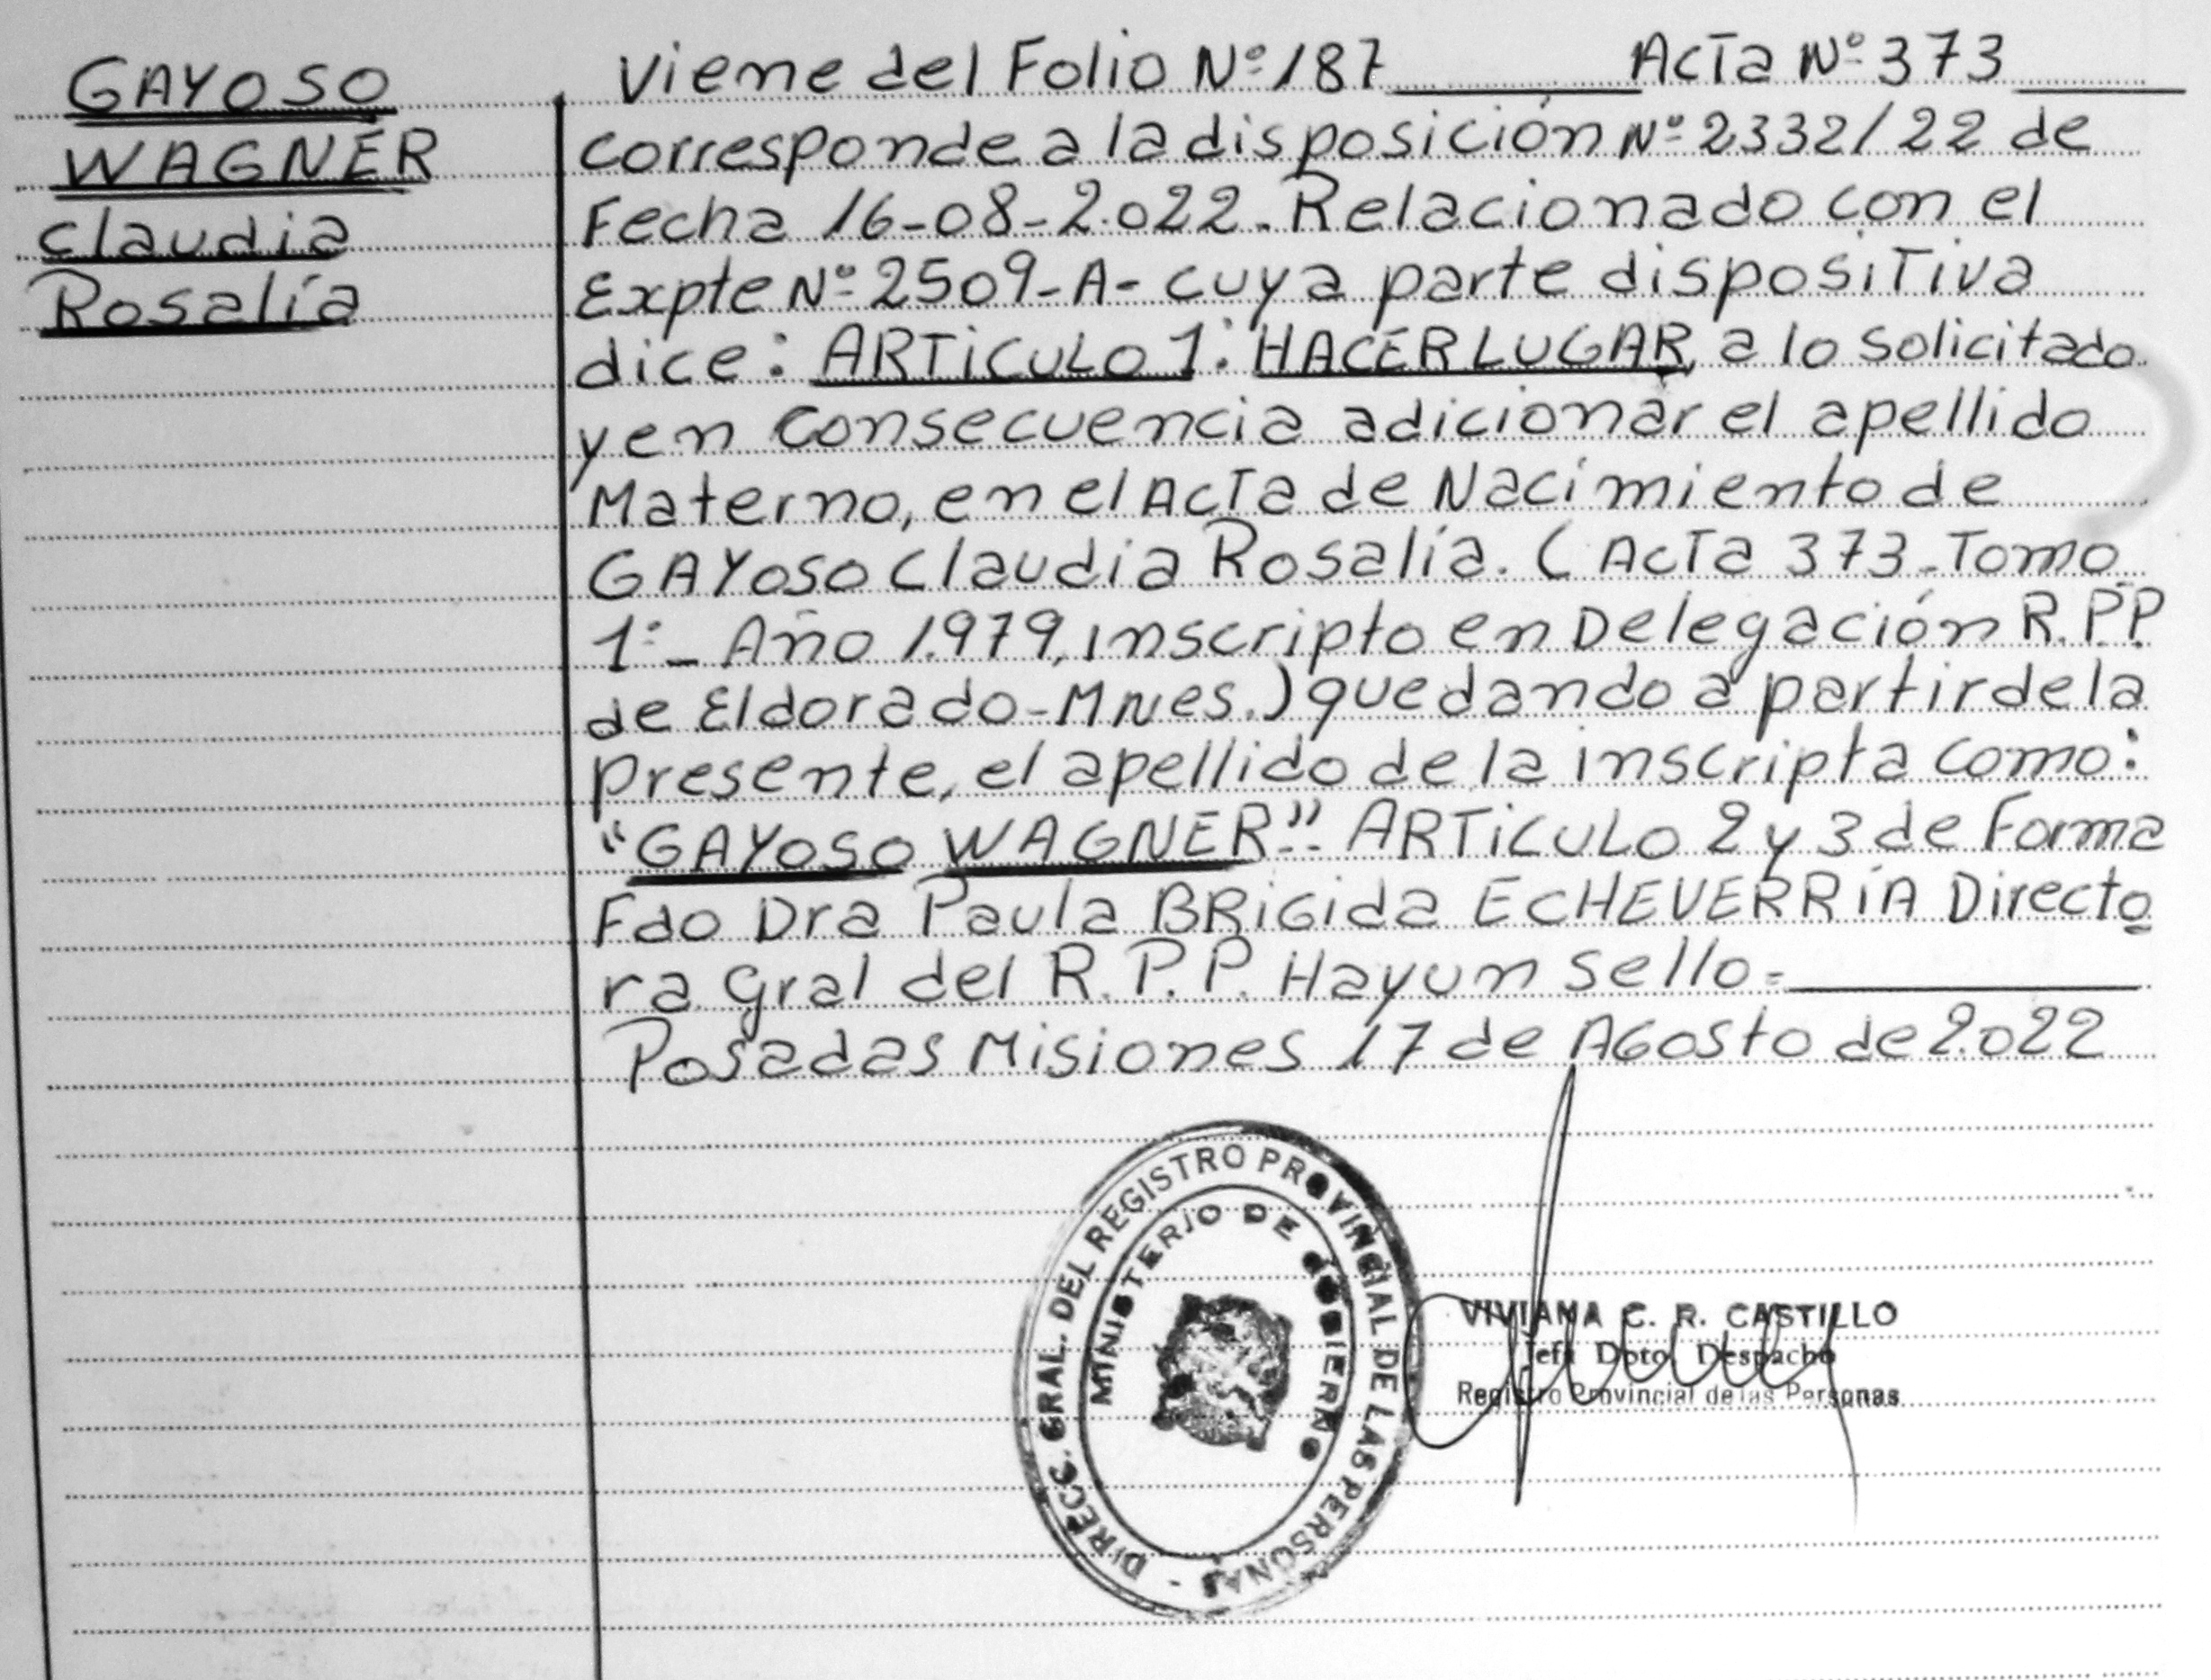 GAYOSO
WAGNER
Claudia
Rosalía
Viene del Folio Nº 187 Acta Nº 373
Corresponde a la disposición Nº 2332/22 de
Fecha 16-08-2.022. Relacionado con el
Expte Nº 2509-A- cuya parte dispositiva
dice: ARTiCULO 1: HACER LUGAR, a lo Solicitado
y en Consecuencia adicionar el apellido
Materno, en el Acta de Nacimiento de
GAYOSO Claudia Rosalía. (Acta 373-Tomo
1º- Año 1.979, inscripto en Delegación R.P.P
de Eldorado-Mnes.) quedando a partir de la
presente, el apellido de la inscripta como:
"GAYOSO WAGNER". ARTiCULO 2 y 3 de Forma
Fdo Dra Paula BRiGida ECHEVERRíA Directo
ra Gral del R.P.P. Hay un Sello-
Posadas Misiones 17 de AGosto de 2.022
DIRECC. GRAL. DEL REGISTRO PROVINCIAL DE LAS PERSONAS -
MINISTERIO DE GOBIERNO
VIVIANA C. R. CASTILLO
Jefa Dpto. Despacho
Registro Provincial de las Personas